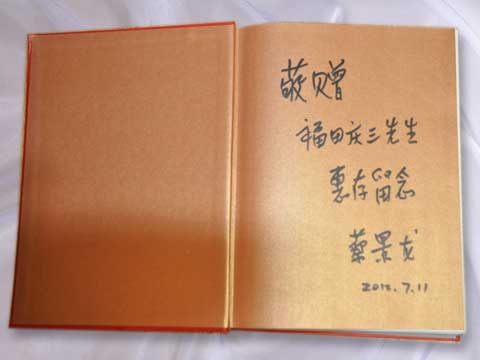 敬赠
福田庆三先生
惠存留念
蔡景戈
2012.7.11